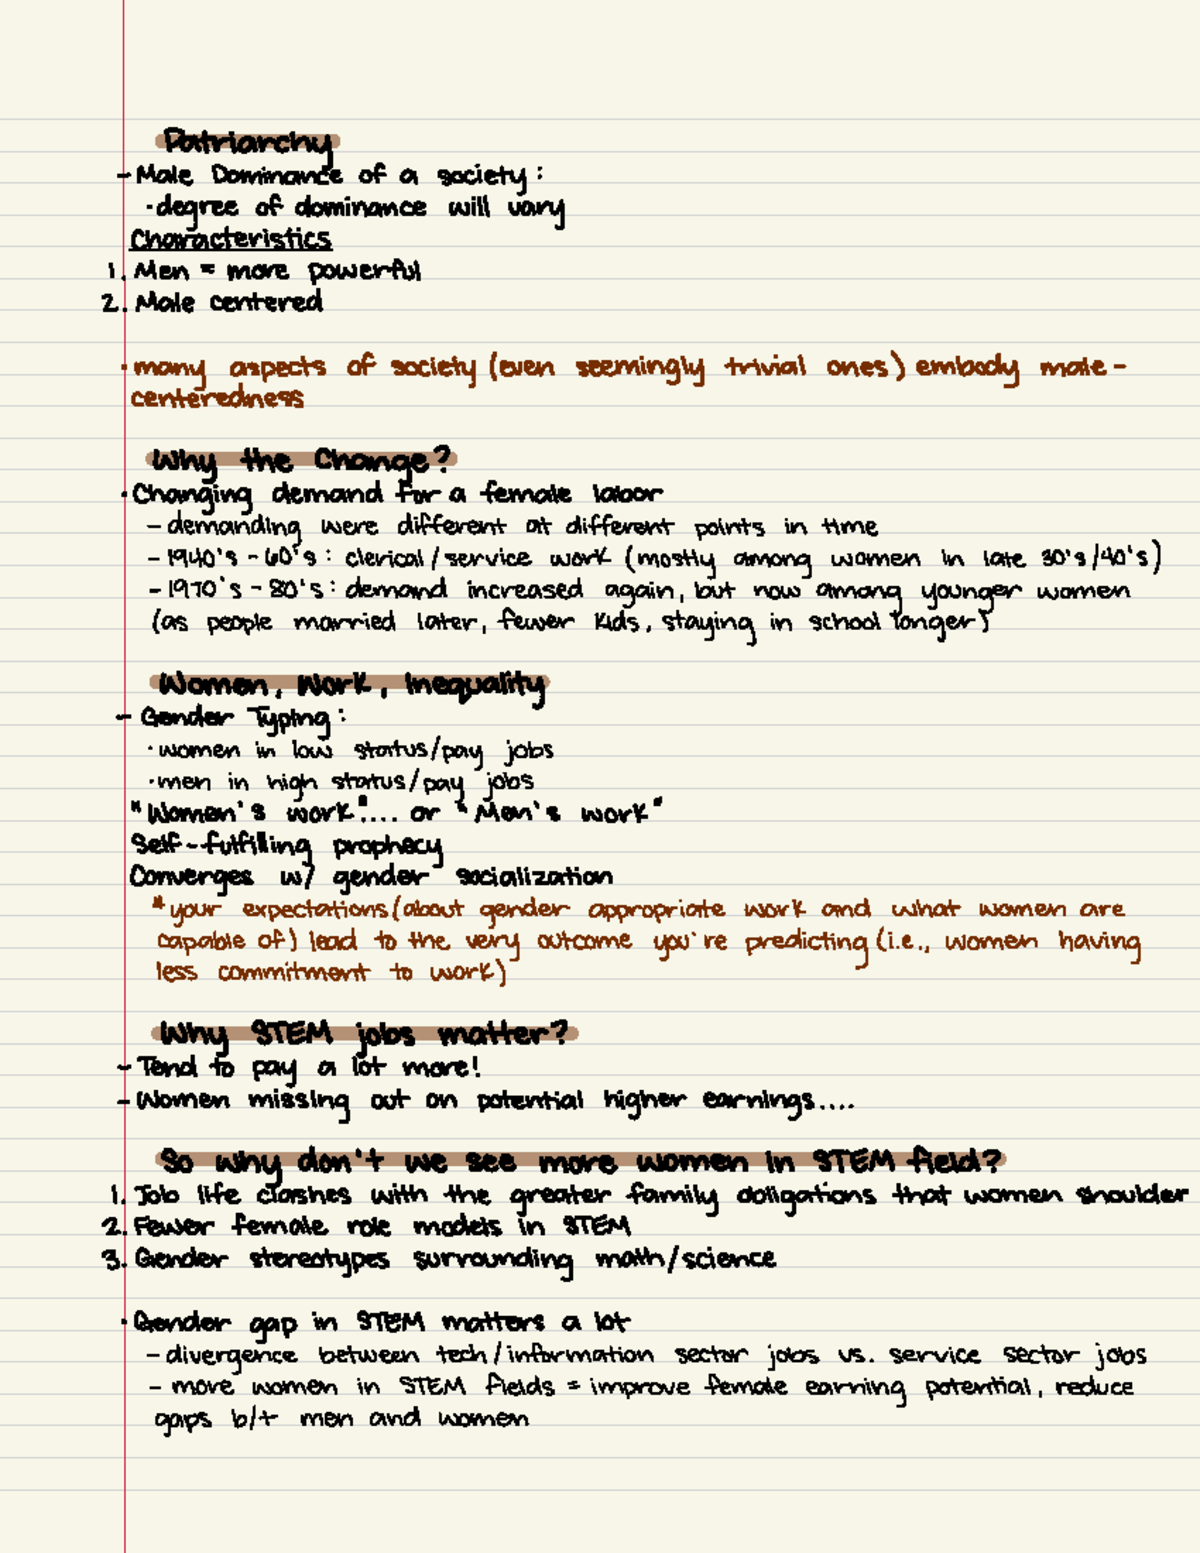 Patriarchy
- Male Dominance of a society:
· degree of dominance will vary
Characteristics
1. Men = more powerful
2. Male centered
· many aspects of society (even seemingly trivial ones) embody male-
centeredness
Why the Change?
· Changing demand for a female labor
- demanding were different at different points in time
- 1940's - 60's: clerical/service work (mostly among women in late 30's/40's)
- 1970's - 80's: demand increased again, but now among younger women
(as people married later, fewer kids, staying in school longer)
Women, Work, Inequality
- Gender Typing:
· women in low status/pay jobs
· men in high status/pay jobs
"Women's work".... or "Men's work"
Self-fulfilling prophecy
Converges w/ gender socialization
* your expectations (about gender appropriate work and what women are
capable of) lead to the very outcome you're predicting (i.e., women having
less commitment to work)
Why STEM jobs matter?
- Tend to pay a lot more!
- Women missing out on potential higher earnings....
So why don't we see more women in STEM field?
1. Job life clashes with the greater family obligations that women shoulder
2. Fewer female role models in STEM
3. Gender stereotypes surrounding math/science
· Gender gap in STEM matters a lot
- divergence between tech/information sector jobs vs. service sector jobs
- more women in STEM fields = improve female earning potential, reduce
gaps b/t men and women